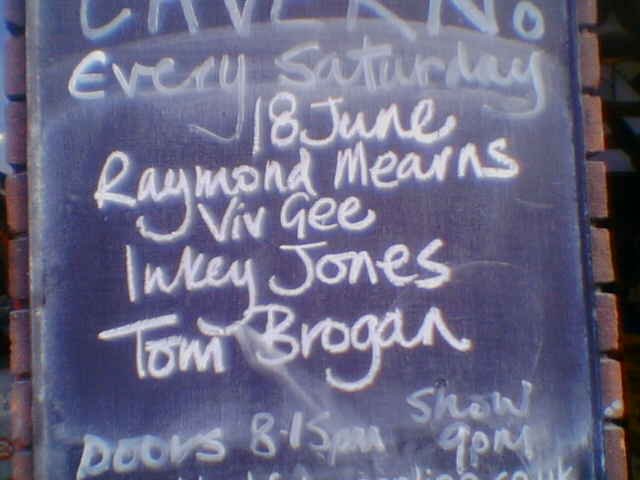 Every Saturday
18 June
Raymond Mearns
Viv Gee
Inkey Jones
Tom Brogan
Doors 8.15pm Show 9pm